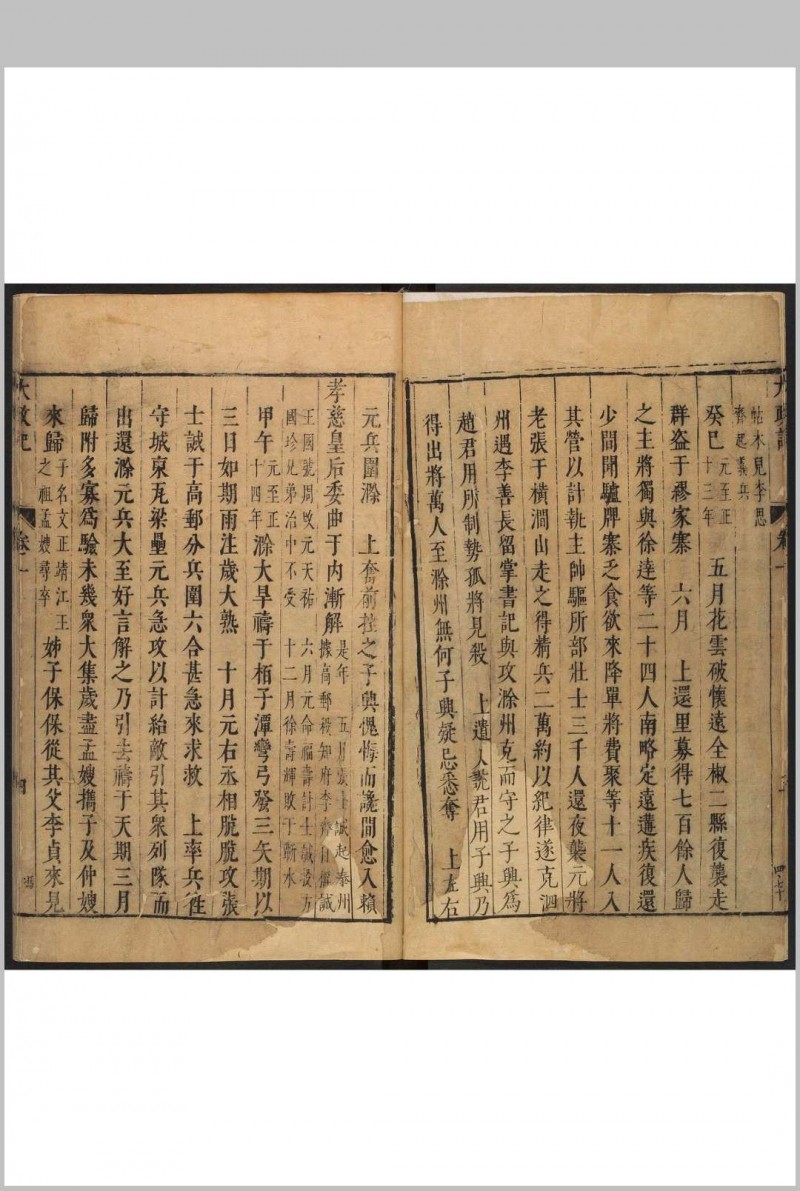 大政記
卷一
帖木兒李思
齊起義兵
癸巳元至正十三年 五月花雲破懷遠全椒二縣復襲走
群盗于繆家寨 六月 上還里募得七百餘人歸
之主將獨與徐逹等二十四人南略定遠遘疾復還
少間聞驢牌寨乏食欲來降單將費聚等十一人入
其營以計執主帥驅所部壯士三千人還夜襲元將
老張于橫澗山走之得精兵二萬約以紀律遂克泗
州遇李善長留掌書記與攻滁州克而守之子興爲
趙君用所制勢孤將見殺 上遣人說君用子興乃
得出將萬人至滁州無何子興疑忌悉奪 上左右
元兵圍滁 上奮前挫之子興愧悔而讒間愈入賴
孝慈皇后委曲于内漸解是年 五月張士誠起泰州據高郵殺知府李齊自稱誠
王國號周改元天祐 六月元命福壽討士誠及方國珍兄弟治中不受 十二月徐壽輝敗于蘄水
甲午元至正十四年 滁大旱禱于栢子潭彎弓發三矢期以
三日如期雨注歲大熟 十月元右丞相脫脫攻張
士誠于高郵分兵圍六合甚急來求救 上率兵徃
守城東瓦梁壘元兵急攻以計紿敵引其衆列隊而
出還滁元兵大至好言解之乃引去禱于天期三月
歸附多寡爲驗未幾衆大集歲盡孟嫂攜子及仲嫂
來歸子名文正靖江王之祖孟嫂尋卒 姊子保保從其父李貞來見
大政記
卷一
四